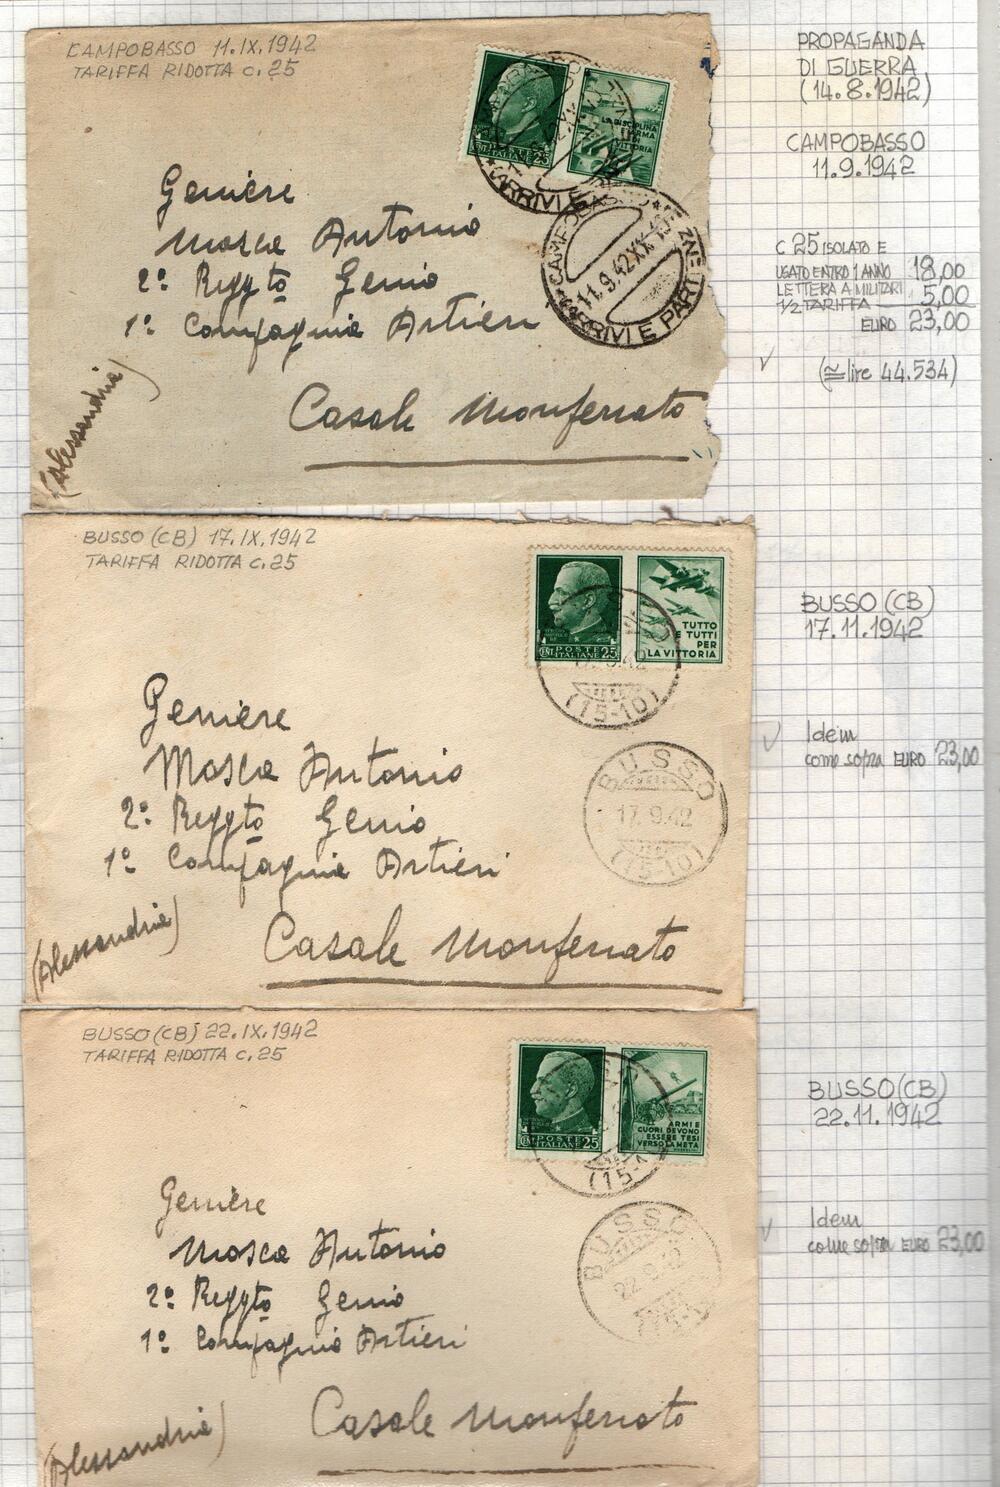 CAMPOBASSO 11.IX.1942
TARIFFA RIDOTTA c.25
POSTE
ITALIANE
CENT 25
LA DISCIPLINA
ARMA
DI
VITTORIA
ARRIVI E
CAMPOBASSO
11.9.42 XX
ARRIVI E PARTENZE
Geniere
Mosca Antonio
2° Reggto Genio
1° Compagnia Artieri
Casale Monferrato
(Alessandria)
PROPAGANDA
DI GUERRA
(14.8.1942)
CAMPOBASSO
11.9.1942
C 25 ISOLATO E
USATO ENTRO 1 ANNO 18,00
LETTERA A MILITARI
1/2 TARIFFA 5,00
EURO 23,00
(≅ lire 44.534)
BUSSO (CB) 17.IX.1942
TARIFFA RIDOTTA c.25
POSTE
ITALIANE
CENT 25
TUTTO
E TUTTI
PER
LA VITTORIA
(15-10)
BUSSO
17.9.42
(15-10)
Geniere
Mosca Antonio
2° Reggto Genio
1° Compagnia Artieri
Casale Monferrato
(Alessandria)
BUSSO (CB)
17.11.1942
Idem
come sopra EURO 23,00
BUSSO (CB) 22.IX.1942
TARIFFA RIDOTTA c.25
POSTE
ITALIANE
CENT 25
ARMI E
CUORI DEVONO
ESSERE TESI
VERSO LA META
MUSSOLINI
BUSSO
22.9.42
Geniere
Mosca Antonio
2° Reggto Genio
1° Compagnia Artieri
Casale Monferrato
(Alessandria)
BUSSO (CB)
22.11.1942
Idem
come sopra EURO 23,00